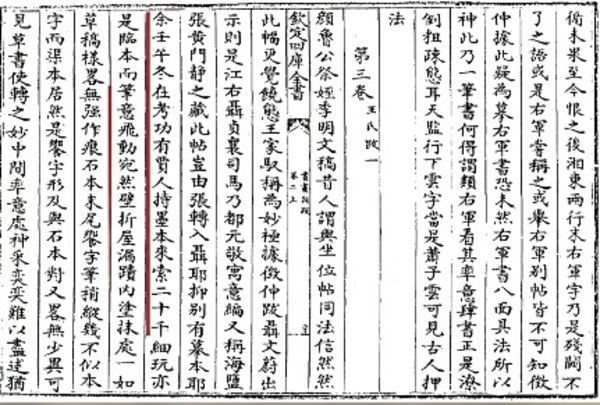 未果至今恨之後湘東兩行末右軍字乃是殘闕不
了之語或是右軍嘗稱之或舉右軍別帖皆不可知徵
仲據此疑為摹右軍書恐未然右軍書八面具法所以
神此乃一筆書何得謂類右軍看其率意肆書正是潦
倒粗疎態耳天監行下雲字當是蕭子雲可見古人押
法
第三卷 王氏跋一
顏魯公祭姪季明文稿昔人謂與坐位帖同法信然然
欽定四庫全書
書畫跋跋
卷二上
此幅更覺饒態王家馭稱為妙極據徵仲跋聶文蔚出
示則是江右聶貞襄司馬乃都元敬寓意編又稱海鹽
張黃門靜之藏此帖豈由張轉入聶耶抑別有摹本耶
余壬午冬在考功有賈人持墨本來索二十千細玩亦
是臨本而筆意飛動宛然壁折屋漏蹟內塗抹處一如
草稿樣畧無強作痕石本末尾饗字筆稍縱幾不似本
字而渠本居然是饗字形及與石本對又畧無少異可
見草書使轉之妙中間率意處神采奕奕難以盡述猶